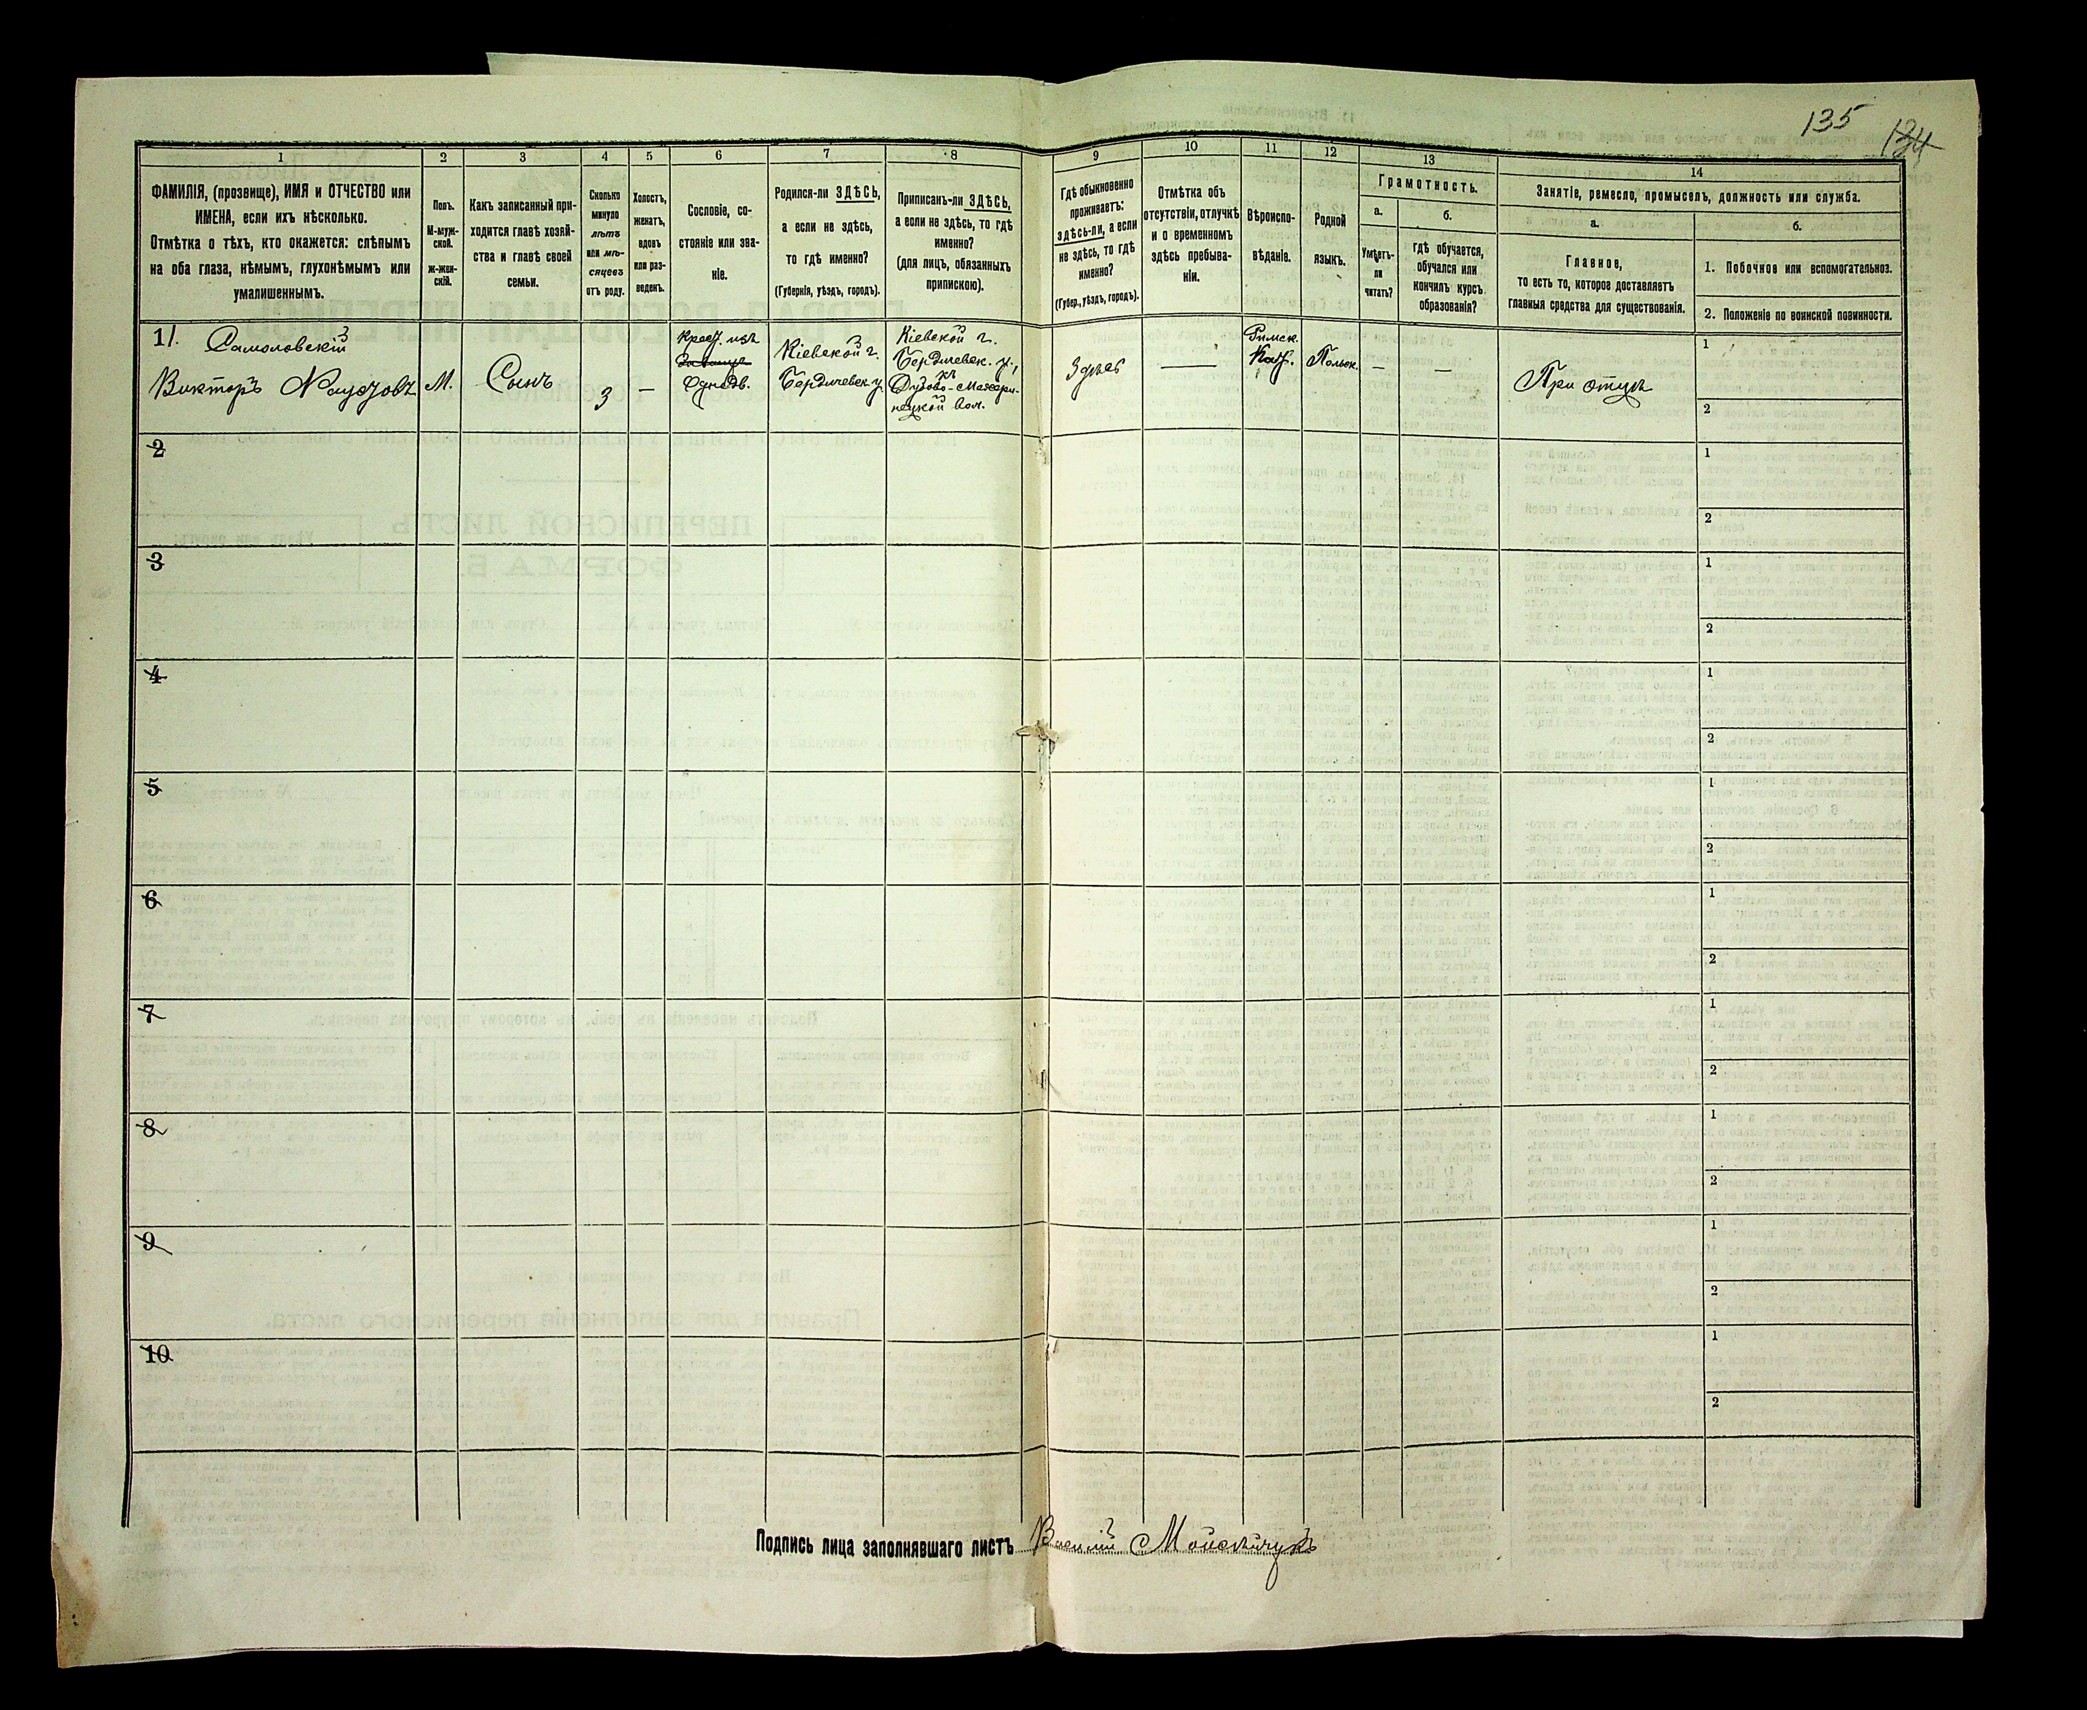 135
134
1
2
3
4
5
6
7
8
9
10
11
12
13
14
ФАМИЛІЯ, (прозвище), ИМЯ и ОТЧЕСТВО или
ИМЕНА, если ихъ нѣсколько.
Отмѣтка о тѣхъ, кто окажется: слѣпымъ
на оба глаза, нѣмымъ, глухонѣмымъ или
умалишеннымъ.
Полъ.
М-муж-
ской.
ж-жен-
скій.
Какъ записанный при-
ходится главѣ хозяй-
ства и главѣ своей
семьи.
Сколько
минуло
лѣтъ
или мѣ-
сяцевъ
отъ роду.
Холостъ,
женатъ,
вдовъ
или раз-
веденъ.
Сословіе, со-
стояніе или зва-
ніе.
Родился-ли ЗДѢСЬ,
а если не здѣсь,
то гдѣ именно?
(Губернія, уѣздъ, городъ).
Приписанъ-ли ЗДѢСЬ,
а если не здѣсь, то гдѣ
именно?
(для лицъ, обязанныхъ
припискою).
Гдѣ обыкновенно
проживаетъ:
здѣсь-ли, а если
не здѣсь, то гдѣ
именно?
(Губер., уѣздъ, городъ).
Отмѣтка объ
отсутствіи, отлучкѣ
и о временномъ
здѣсь пребыва-
ніи.
Вѣроиспо-
вѣданіе.
Родной
языкъ.
Грамотность.
а.
б.
Умѣетъ-
ли
читать?
Гдѣ обучается,
обучался или
кончилъ курсъ
образованія?
Занятіе, ремесло, промыселъ, должность или служба.
а.
б.
Главное,
то есть то, которое доставляетъ
главныя средства для существованія.
1. Побочное или вспомогательноз.
2. Положеніе по воинской повинности.
11.
Викторъ
М.
Сынъ
3
—
Крест. изъ
Однодв.
Кіевской г.
Бердичевск. у.
Кіевской г.
Бердичевск. у.,
Здѣсь
—
Римск.
Кат.
Польск.
—
—
При отцѣ
1
2
2
1
2
3
1
2
4
1
2
5
1
2
6
1
2
7
1
2
8
1
2
9
1
2
10
1
2
Подпись лица заполнявшаго листъ